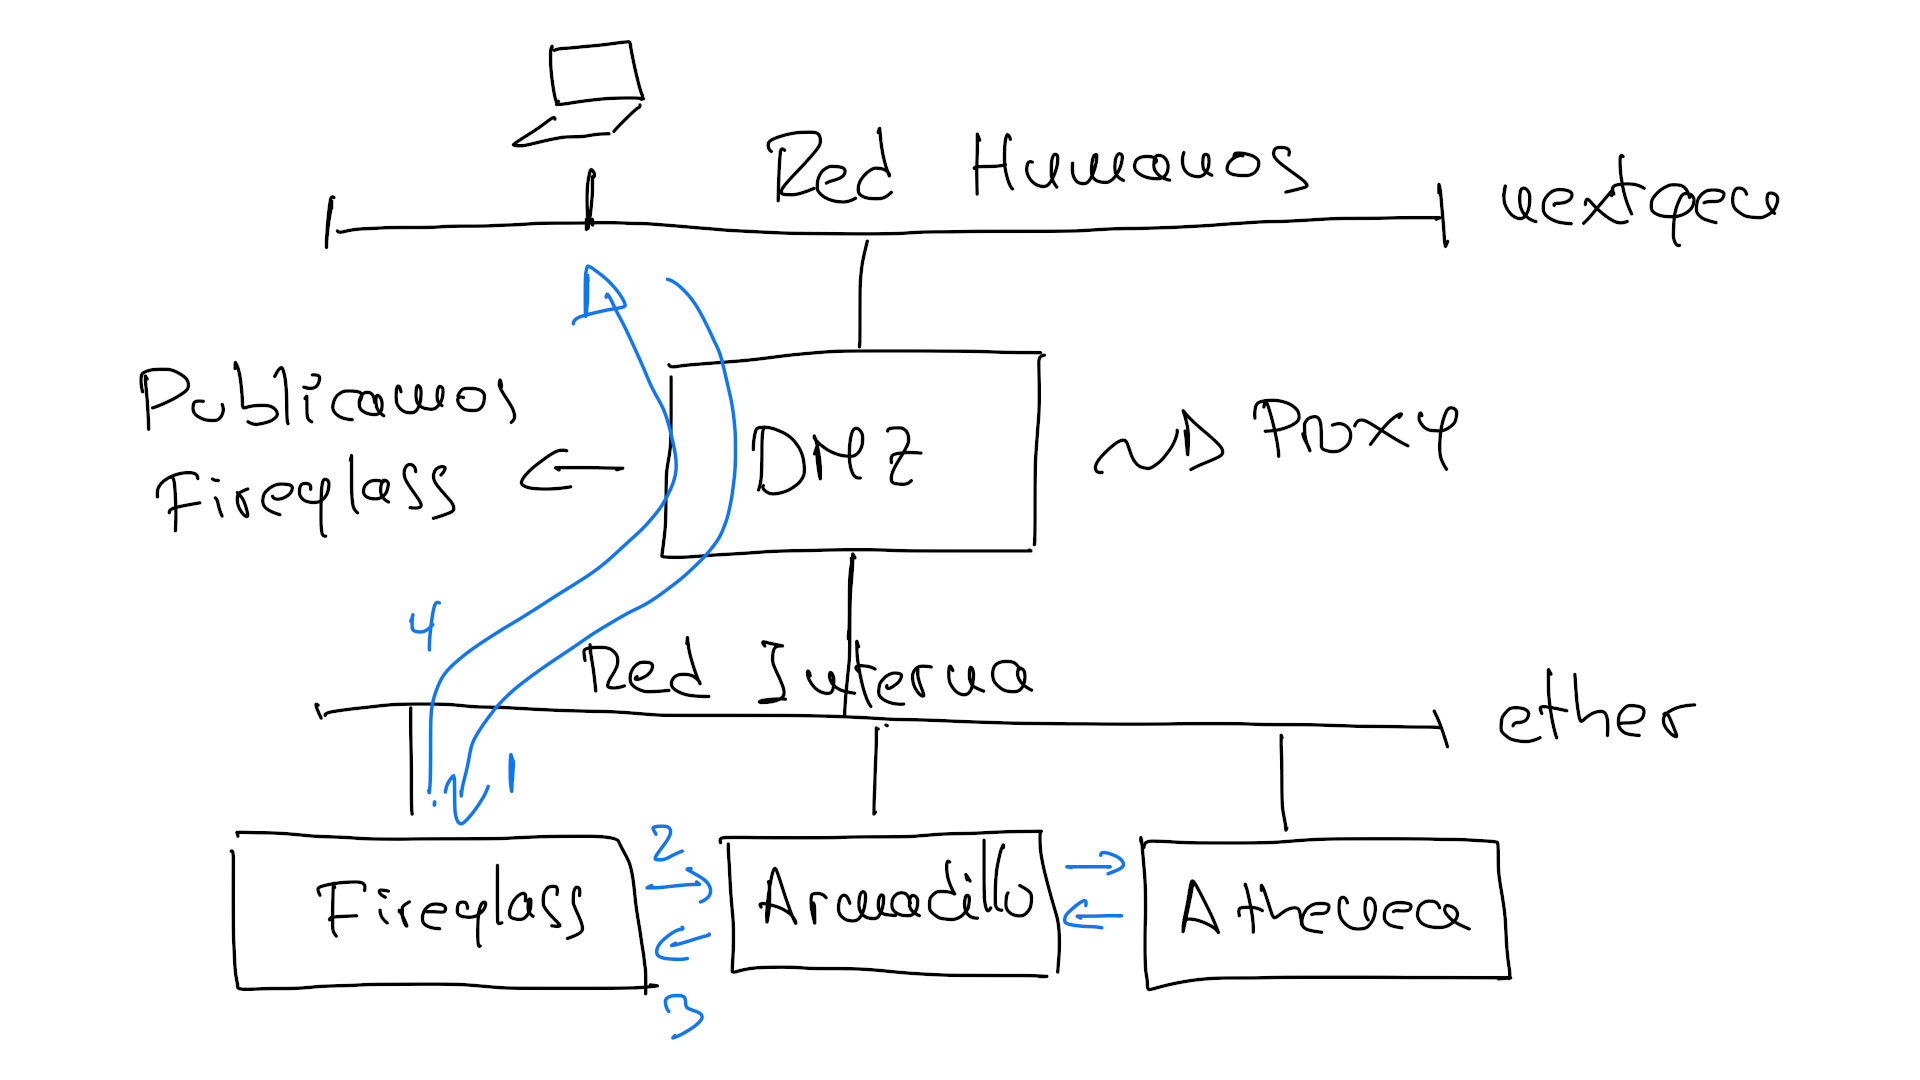 Red Humanos
nextgen
Publicamos
Fireglass
DMZ
Proxy
4
Red Interna
ether
1
2
Fireglass
Armadillo
Atheneea
3